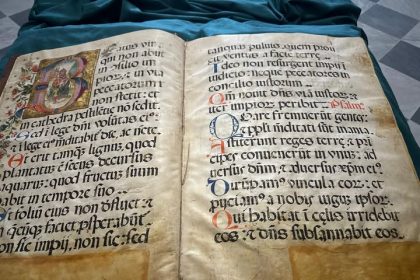 Beatus vir
qui non abiit
in consilio im
piorum, et in via
peccatorum
non stetit: et
in cathedra pestilentie no sedit.
Sed i lege dni voluntas ei:
et i lege ei meditabit die, ac nocte.
Et erit tamq; lignum, quod
plantatum e secus decursus
aquarum: quod fructum suum
dabit in tempore suo.
Et folium eius non defluet: et
omnia, quecumq; faciet prosperabunt.
Non sic impij, non sic: sed
tanquam puluis, quem proij
cit ventus a facie terre.
Ideo non resurgent impij i
iudicio: neque peccatores in
concilio iustorum.
Qm nouit dns viam iustorum: et
iter impiorum peribit. Psalm.
Quare fremuerunt gentes:
et ppli meditati sunt inania.
Astiterunt reges terre, et prin
cipes conuenerunt in vnum:
aduersus dnm, et aduersus xpm ei.
Dirupam vincula eor: et
proijciam a nobis iugum ipsor.
Qui habitat i celis irridebit
eos: et dns subsannabit eos.